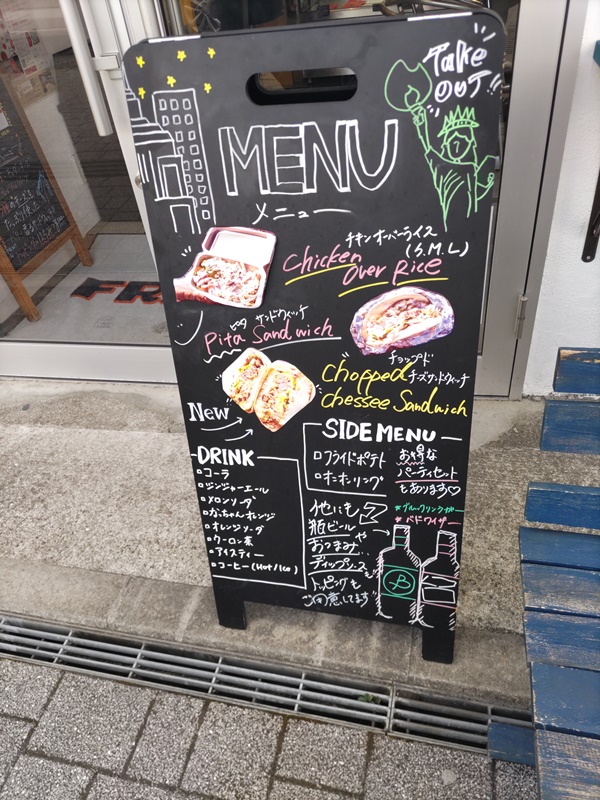 Take
OUT!!
MENU
メニュー
チキンオーバーライス
(S.M.L)
Chicken
Over Rice
ピタ サンドウィッチ
Pita Sandwich
チョップド
チーズサンドウィッチ
Chopped
chessee Sandwich
New
DRINK
コーラ
ジンジャーエール
メロンソーダ
オレンジソーダ
ウーロン茶
アイスティー
コーヒー(Hot/Ice)
SIDE MENU
フライドポテト
オニオンリング
お得な
パーティセット
もあります♡
他にも
瓶ビールや
おつまみ
ディップソース
トッピングも
ご用意してます
*ブルックリンラガー
*バドワイザー
B
FR